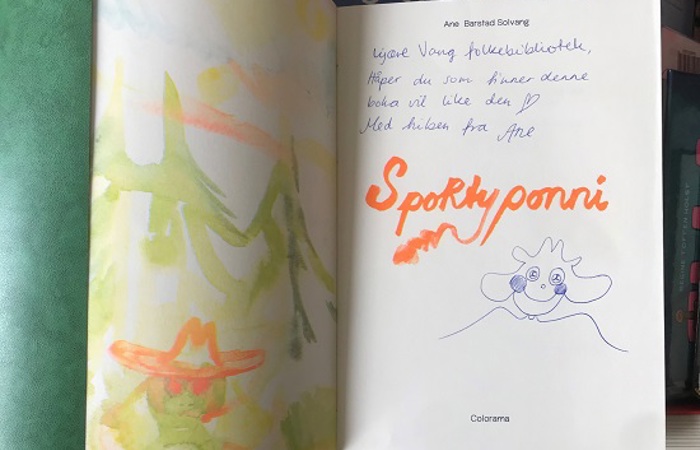 Ane Barstad Solvang
Kjære Vang folkebibliotek,
Håper du som finner denne
boka vil like den
Med hilsen fra Ane
Sportyponni
Colorama